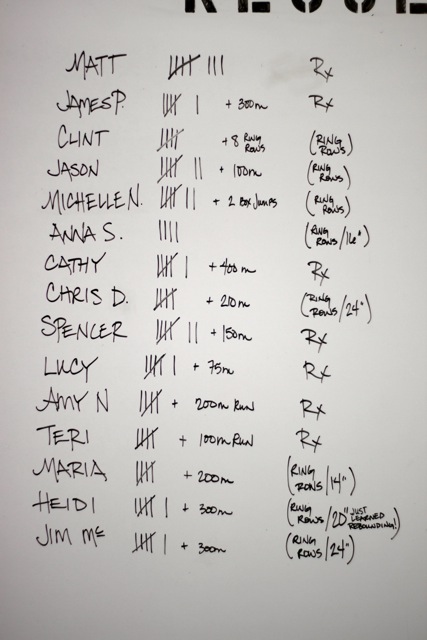 MATT |||| ||| Rx
JAMES P. |||| | + 300m Rx
CLINT |||| + 8 RING ROWS (RING ROWS)
JASON |||| || + 100m (RING ROWS)
MICHELLE N. |||| || + 2 BOX JUMPS (RING ROWS)
ANNA S. |||| (RING ROWS/16")
CATHY |||| | + 400m Rx
CHRIS D. |||| + 210m (RING ROWS/24")
SPENCER |||| || + 150m Rx
LUCY |||| | + 75m Rx
AMY N |||| + 200m RUN Rx
TERI |||| + 100m RUN Rx
MARIA |||| + 200m (RING ROWS/14")
HEIDI |||| | + 300m (RING ROWS/20" JUST LEARNED REBOUNDING!)
JIM Mc |||| | + 300m (RING ROWS/24")